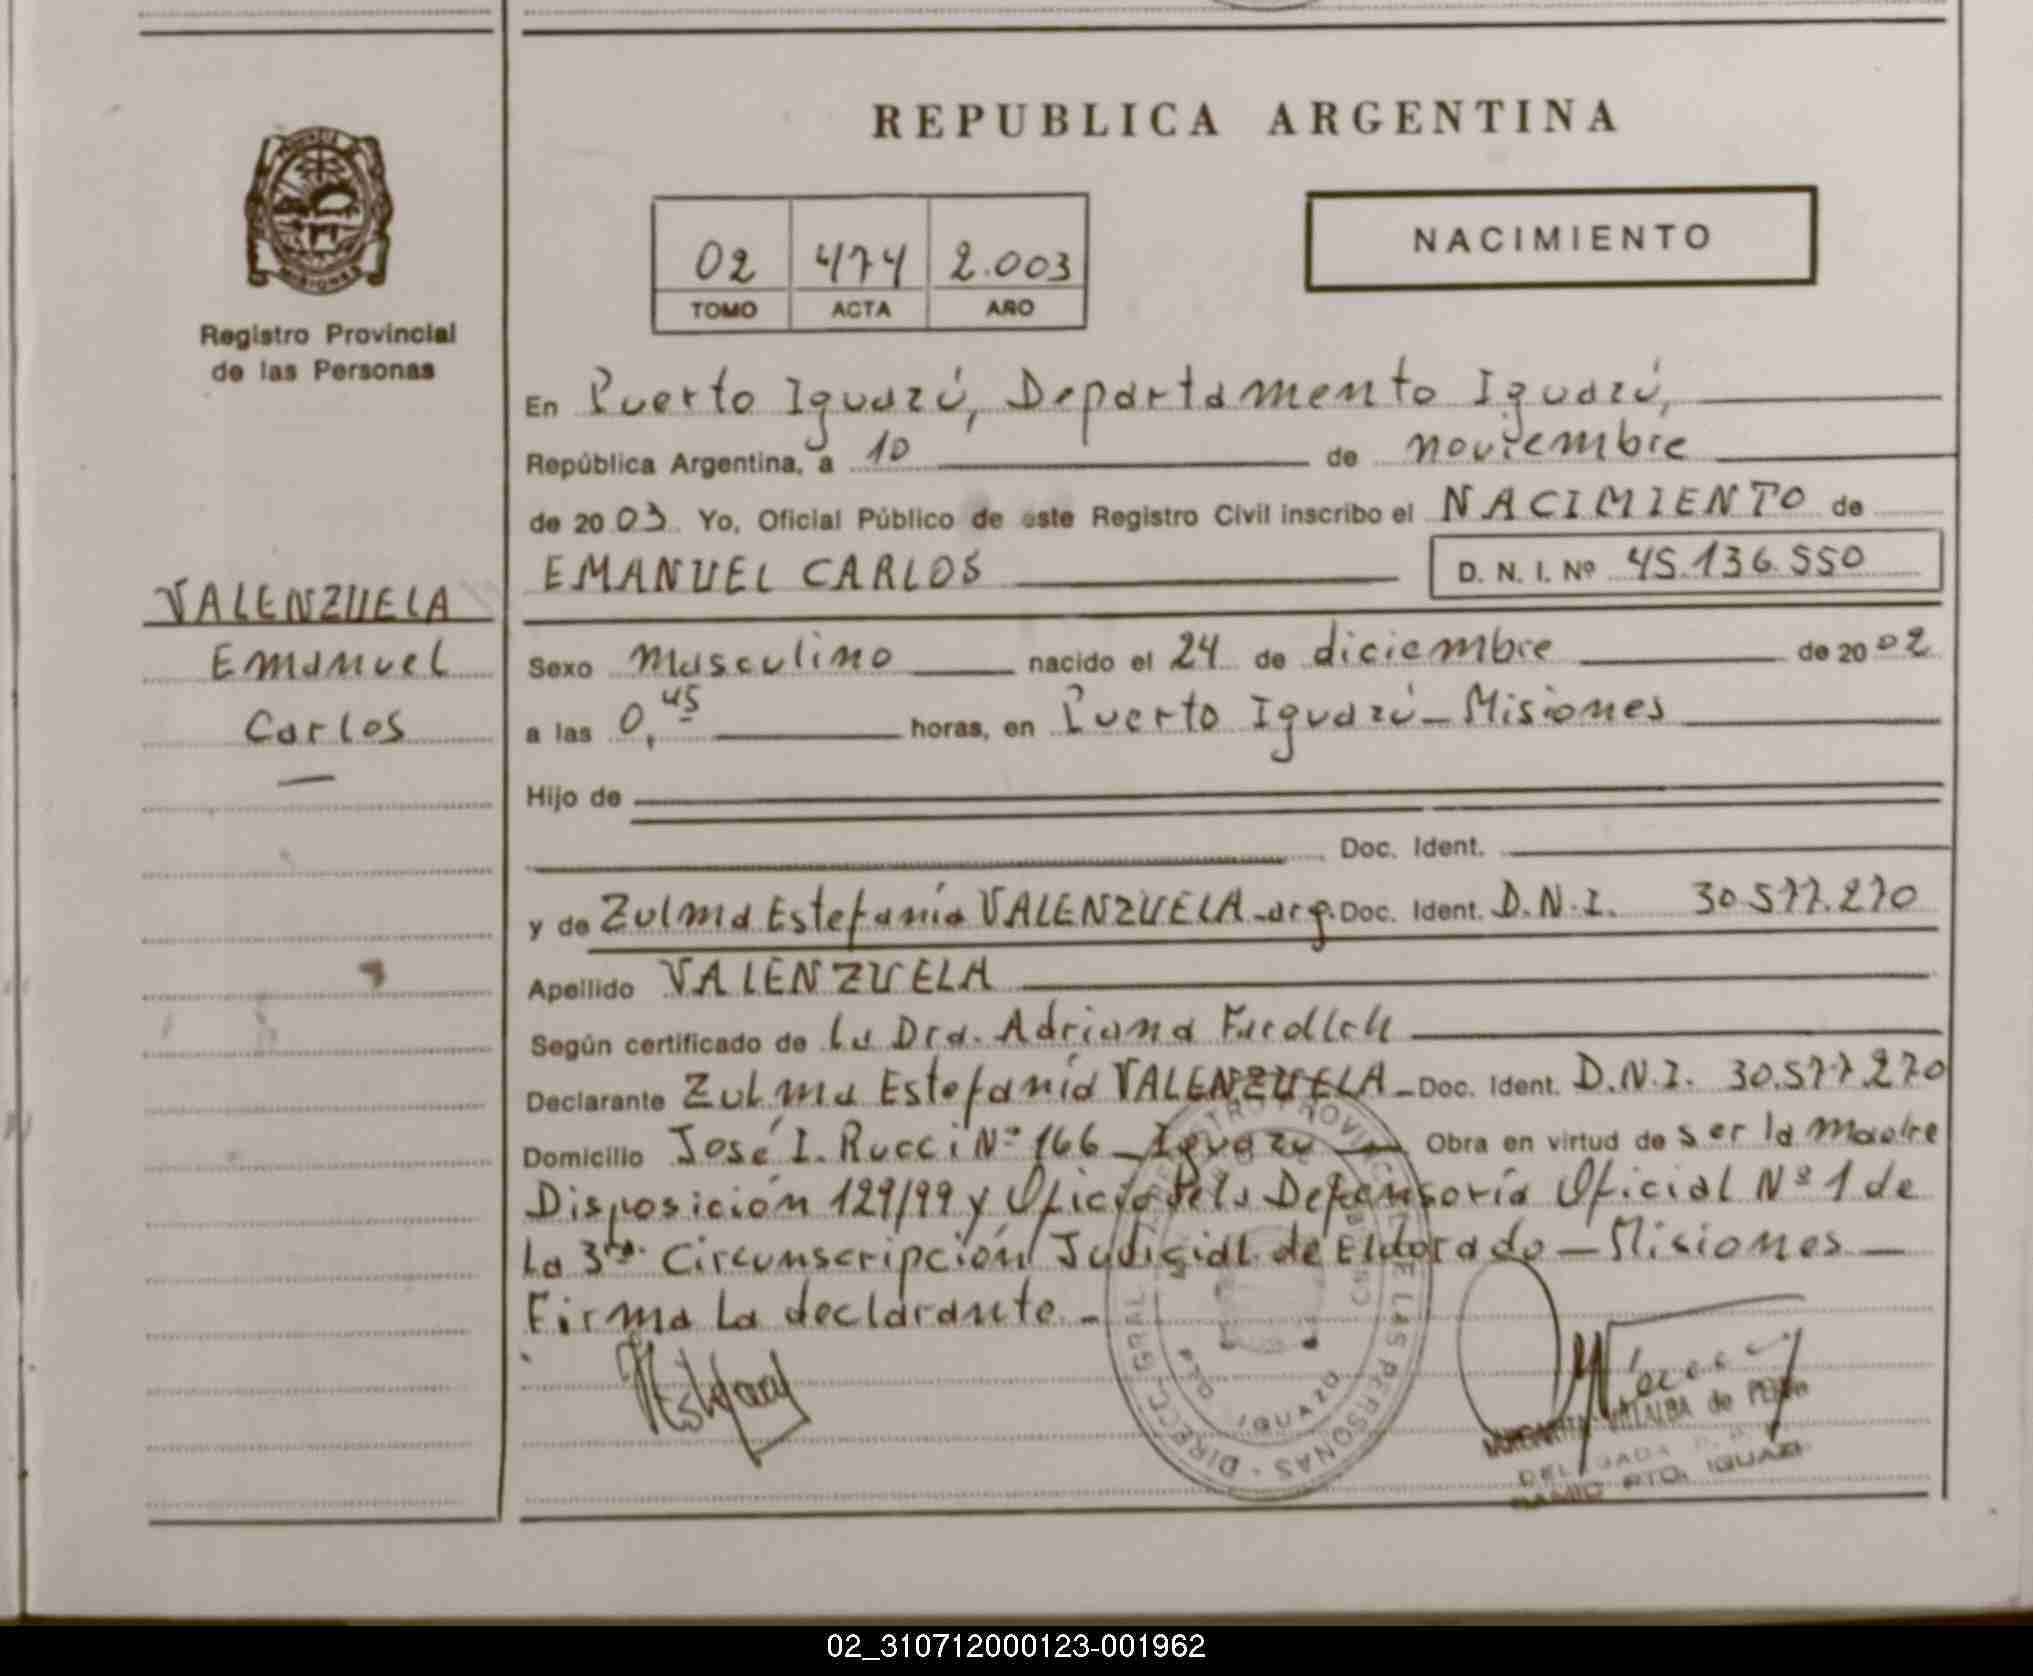 REPUBLICA ARGENTINA
02 474 2.003
TOMO ACTA AÑO
NACIMIENTO
MISIONES
Registro Provincial
de las Personas
En Puerto Iguazú, Departamento Iguazú,
República Argentina, a 10 de noviembre
de 2003 Yo, Oficial Público de este Registro Civil inscribo el NACIMIENTO de
EMANUEL CARLOS D. N. I. Nº 45.136.550
VALENZUELA
Emanuel
Carlos
Sexo masculino nacido el 24 de diciembre de 2002
a las 0,45 horas, en Puerto Iguazú - Misiones
Hijo de
Doc. Ident.
y de Zulma Estefanía VALENZUELA - arg. Doc. Ident. D.N.I. 30.577.270
Apellido VALENZUELA
Según certificado de La Dra. Adriana
Declarante Zulma Estefanía VALENZUELA - Doc. Ident. D.N.I. 30.577.270
Domicilio José I. Rucci Nº 166 - Iguazú - Obra en virtud de ser la madre
Disposición 129/99 y Oficio de la Defensoría Oficial Nº 1 de
La 3ra. Circunscripción Judicial de Eldorado - Misiones -
Firma La declarante. -
DIRECC. GRAL. REGISTRO PROVINCIAL DE LAS PERSONAS
IGUAZU
MARGARITA VILLALBA de
DELEGADA
PTO. IGUAZU
02_310712000123-001962